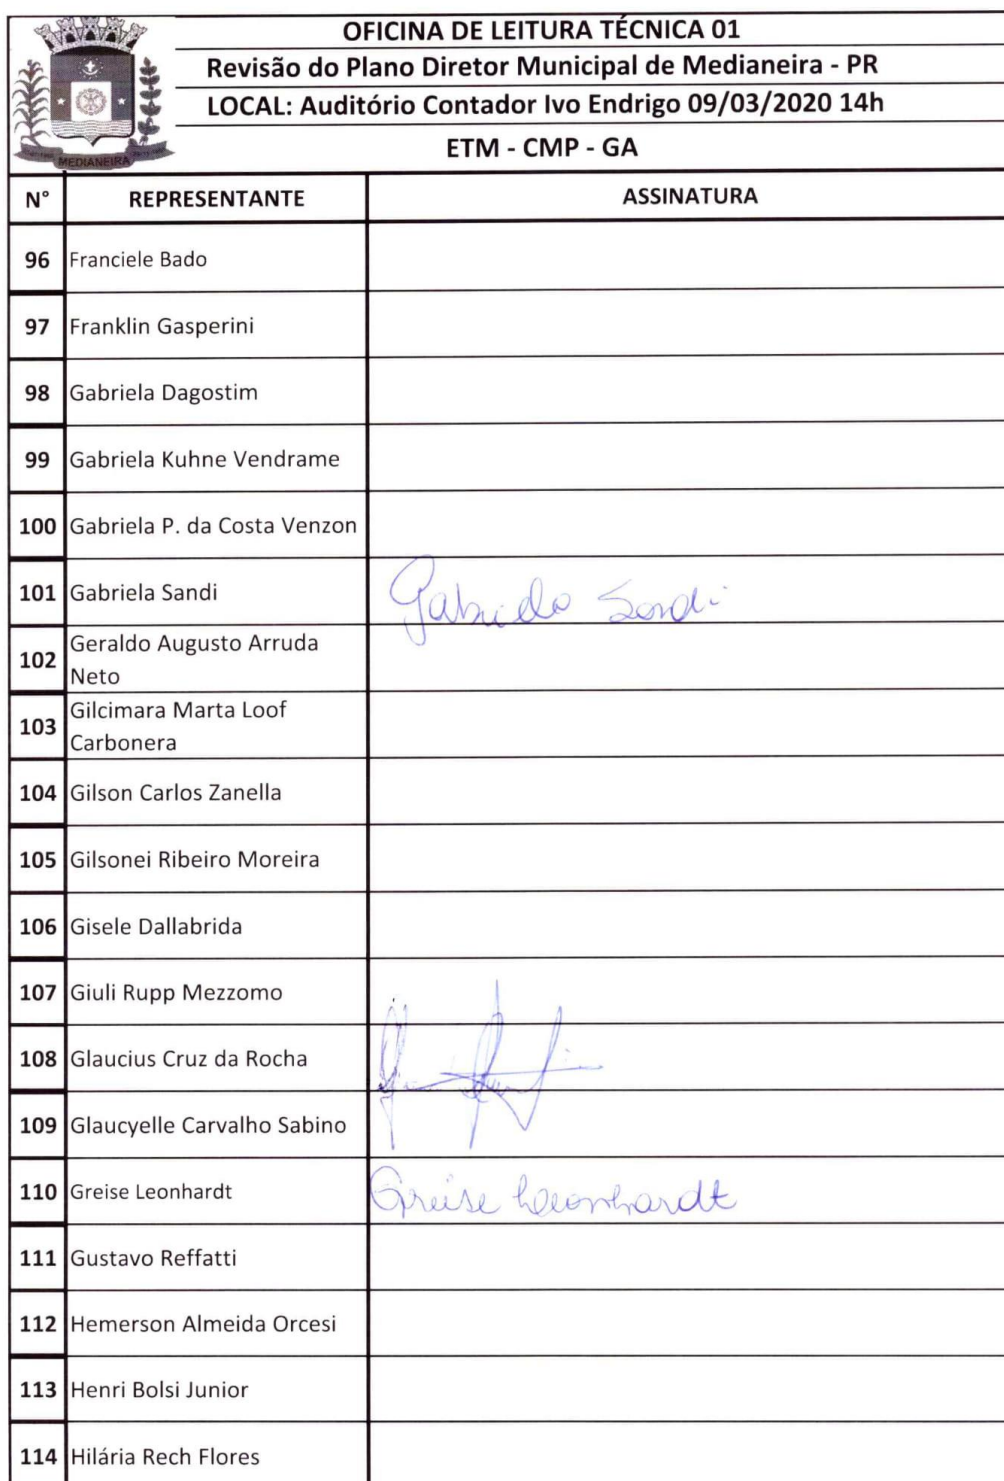 OFICINA DE LEITURA TÉCNICA 01
Revisão do Plano Diretor Municipal de Medianeira - PR
LOCAL: Auditório Contador Ivo Endrigo 09/03/2020 14h
ETM - CMP - GA
MEDIANEIRA
N° REPRESENTANTE ASSINATURA
96 Franciele Bado
97 Franklin Gasperini
98 Gabriela Dagostim
99 Gabriela Kuhne Vendrame
100 Gabriela P. da Costa Venzon
101 Gabriela Sandi Gabriela Sandi
102 Geraldo Augusto Arruda
Neto
103 Gilcimara Marta Loof
Carbonera
104 Gilson Carlos Zanella
105 Gilsonei Ribeiro Moreira
106 Gisele Dallabrida
107 Giuli Rupp Mezzomo
108 Glaucius Cruz da Rocha
109 Glaucyelle Carvalho Sabino
110 Greise Leonhardt Greise Leonhardt
111 Gustavo Reffatti
112 Hemerson Almeida Orcesi
113 Henri Bolsi Junior
114 Hilária Rech Flores